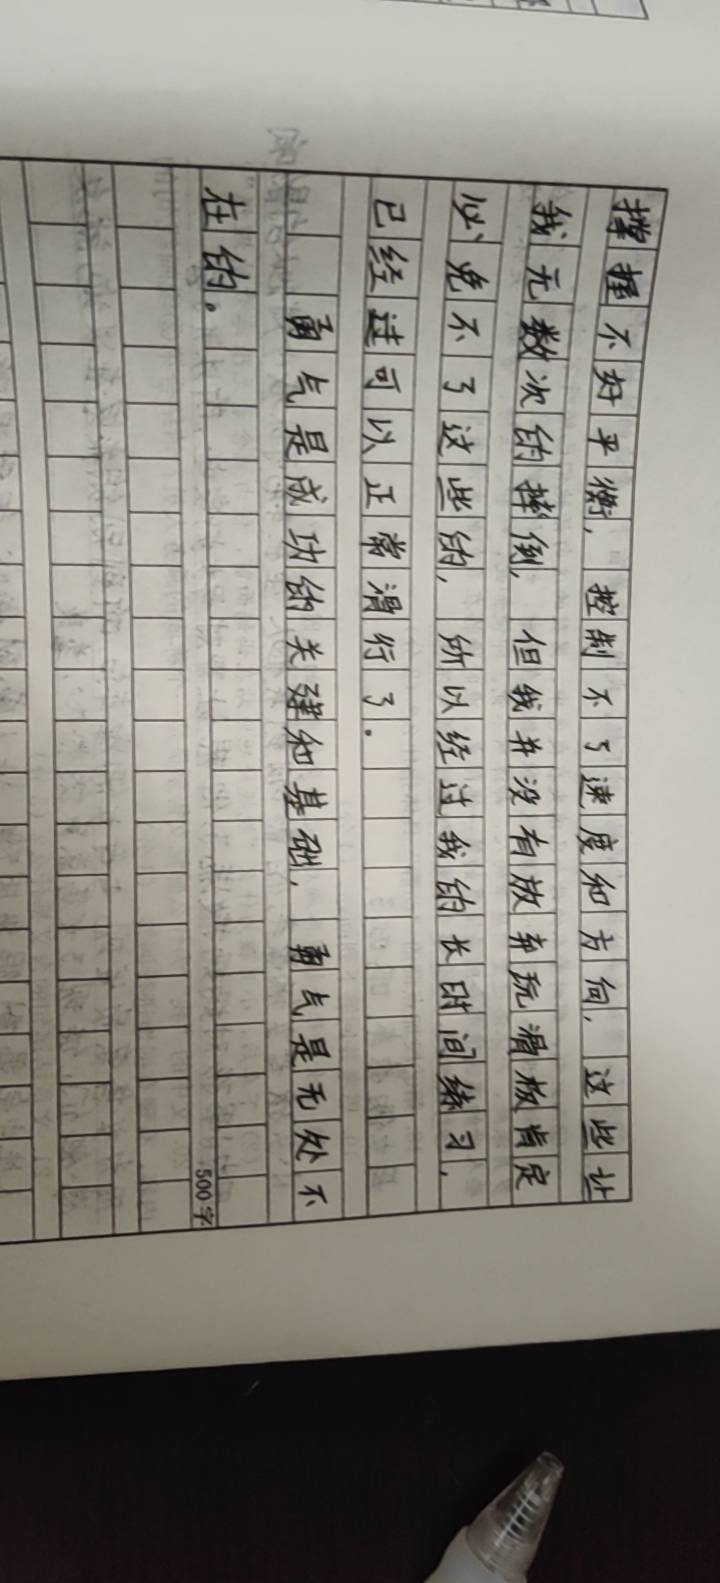 撑握不好平衡，控制不了速度和方向，这些让
我无数次的摔倒，但我并没有放弃玩滑板肯定
必免不了这些的，所以经过我的长时间练习，
已经进可以正常滑行了。
勇气是成功的关建和基础，勇气是无处不
在的。
500字